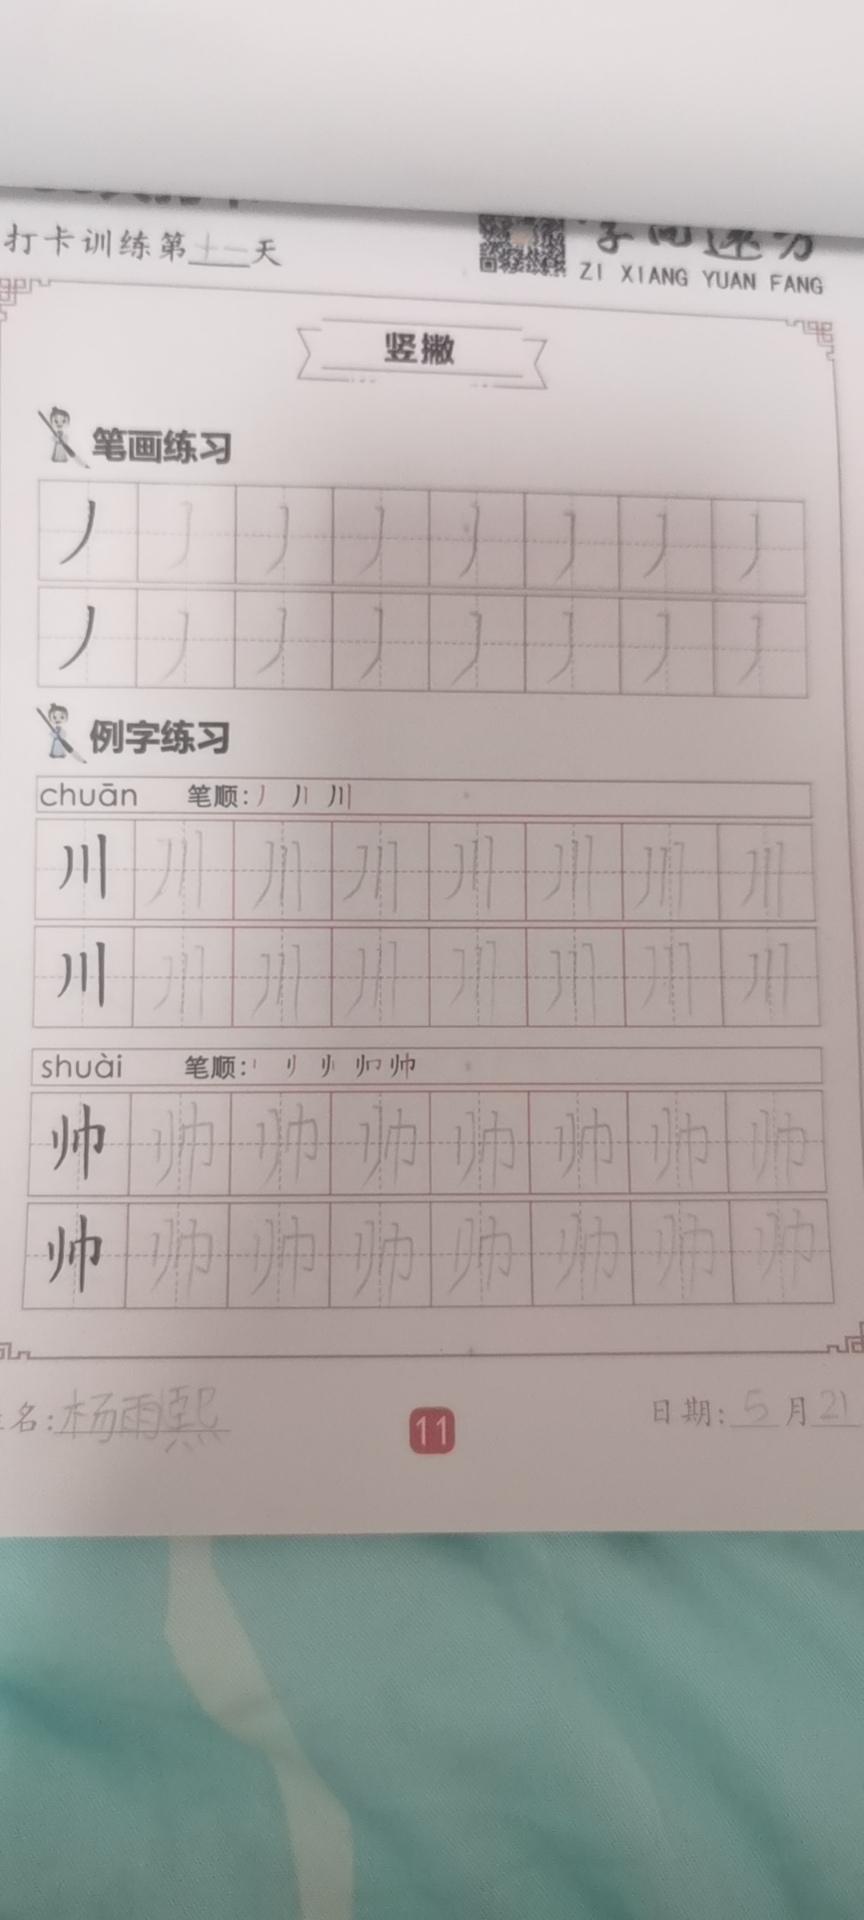 打卡训练第十一天
ZI XIANG YUAN FANG
竖撇
笔画练习
丿 丿 丿 丿 丿 丿 丿 丿
丿 丿 丿 丿 丿 丿 丿 丿
例字练习
chuān 笔顺: 川
川 川 川 川 川 川 川 川
川 川 川 川 川 川 川 川
shuài 笔顺: 帅
帅 帅 帅 帅 帅 帅 帅 帅
帅 帅 帅 帅 帅 帅 帅 帅
名:杨雨熙
11
日期:5月21